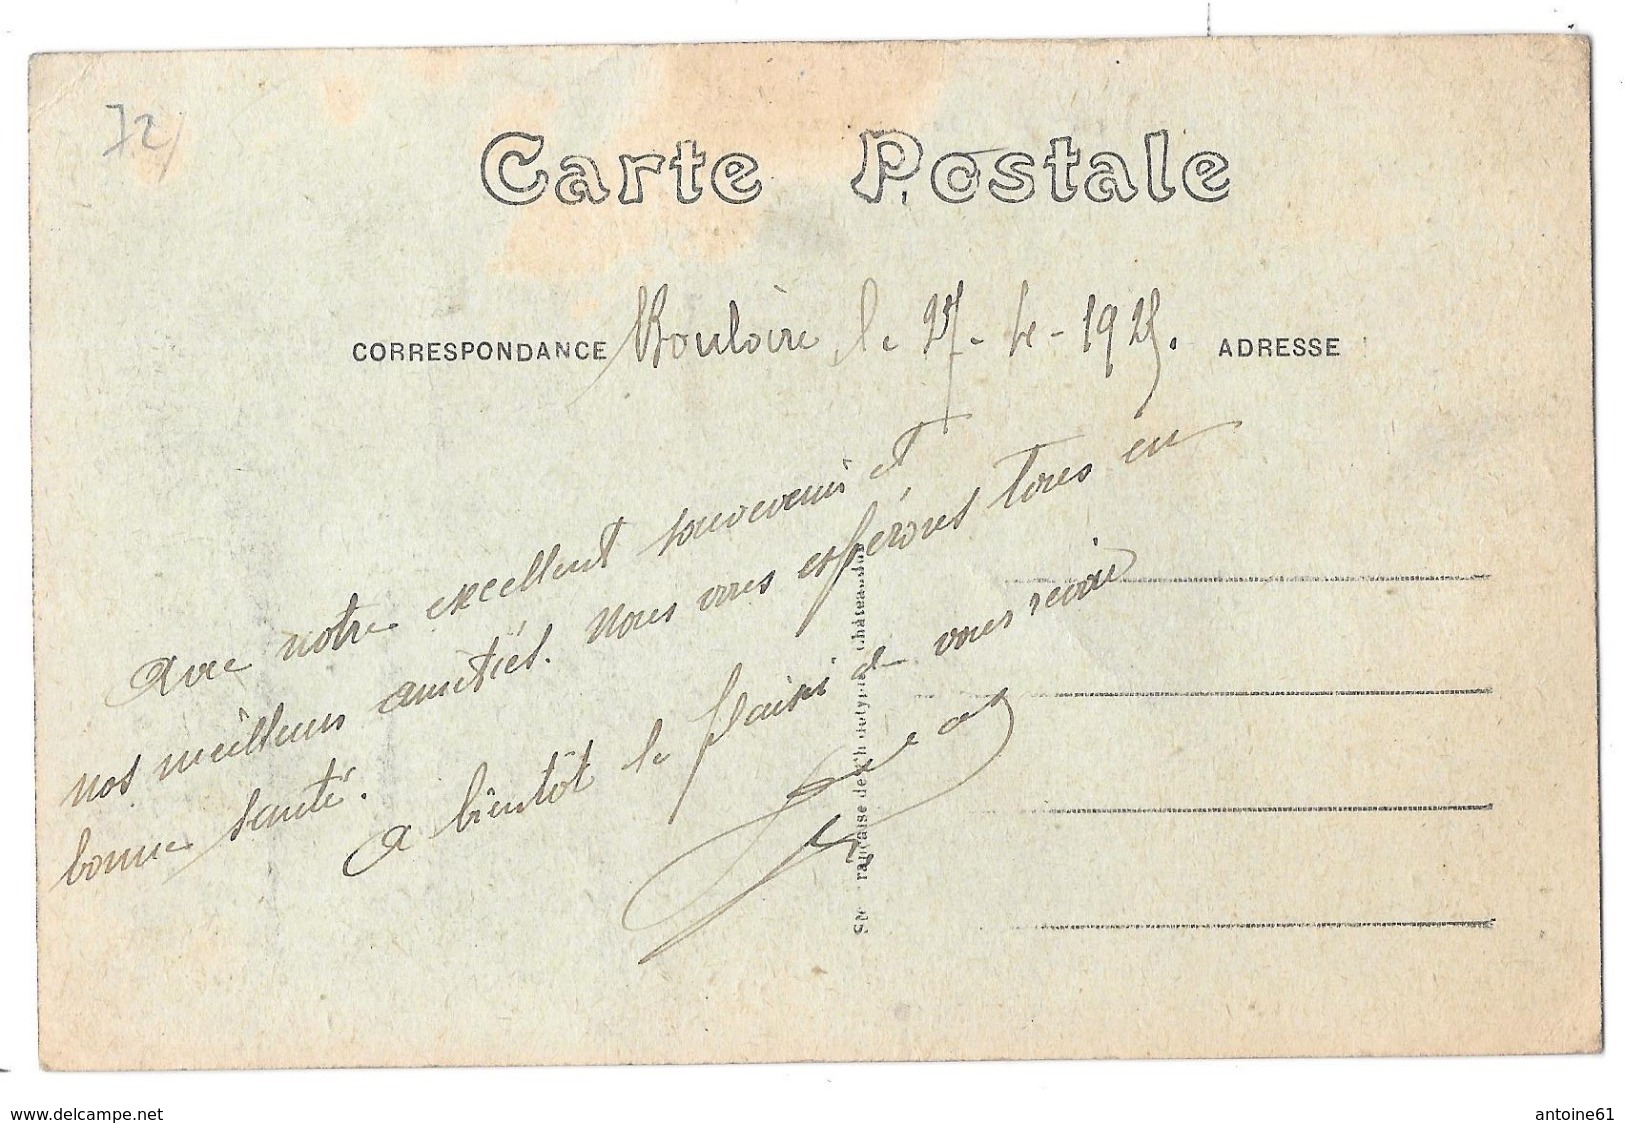 72
Carte Postale
CORRESPONDANCE
Bouloire le 27-4-1925.
ADRESSE
Avec notre excellent souvenir et
nos meilleurs amitiés. Nous vous espérons tous en
bonne santé.
A bientôt le plaisir de vous revoir
Sté française de Phototypie Châteaudun
www.delcampe.net
antoine61